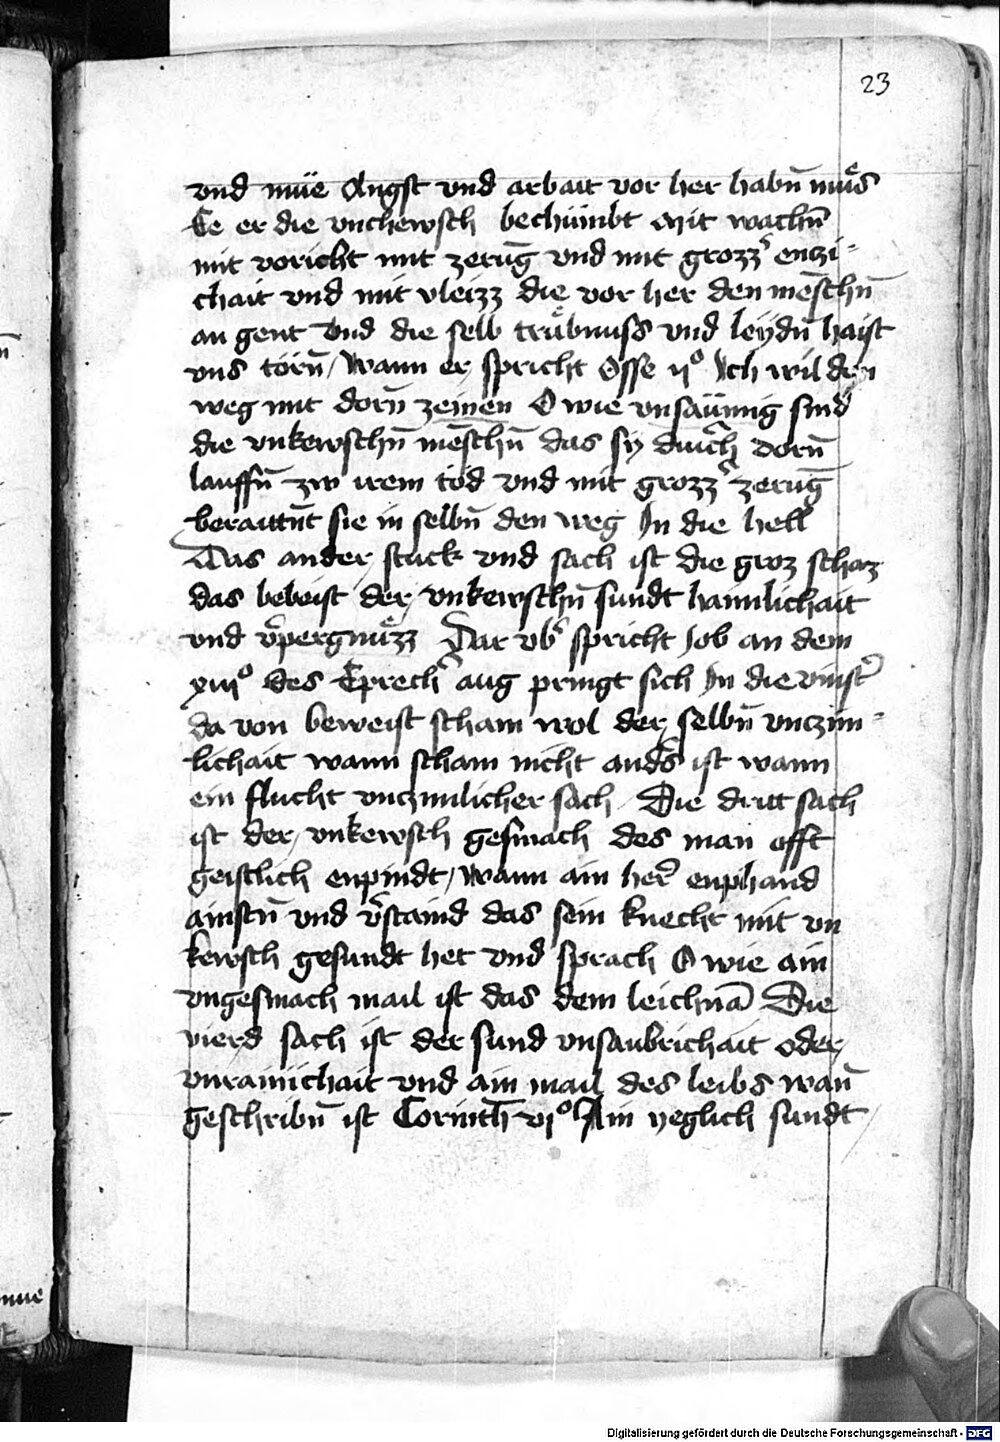 23
vnd müe Angst vnd arbait vor her habn̄ muͤs
Ee er die vnchewsch bechümbt mit wachn̄
mit voricht mit zeruḡ vnd mit grozz' enczi-
chait vnd mit vleizz die vor her den mēschn̄
an gent Vnd die selb trüͤbnuss vnd leydn̄ haist
vns törn̄ / Wann er spricht Osse ijº Ich wil den
weg mit dorn̄ zeinen O wie vnsäumig sind
die vnkewschn̄ mēschn̄ das sy durch dorn̄
lauffn̄ zw irem tod vnd mit grozz' zeruḡ
beraittn̄t sie in selbn̄ den weg In die hell
Das ander stuck vnd sach ist die groz scham
das beweist der vnkewschn̄ sundt haimlichait
vnd v̄pergnuͤzz Dar vb' spricht Job an dem
xiiijº des Eprech' aug pringt sich In die vinst'
da von beweist scham wol der selbn̄ vnczim-
lichait wann scham nicht and's ist wann
ein flucht vnczimlicher sach Die dritt sach
ist der vnkewsch gesmach des man offt
geistlich enpindt / Wann ain her' enphand
ainstn̄ vnd v̄staind das sein knecht mit vn
kewsch gesundt het vnd sprach O wie ain
vngesmach mail ist das dem leichnā Die
vierd sach ist der sund vnsaubrichait oder
vnrainichait vnd ain mail des leibs wan̄
geschribn̄ ist Corinth̄ vjº Ain yeglich sundt
nme
Digitalisierung gefördert durch die Deutsche Forschungsgemeinschaft - DFG